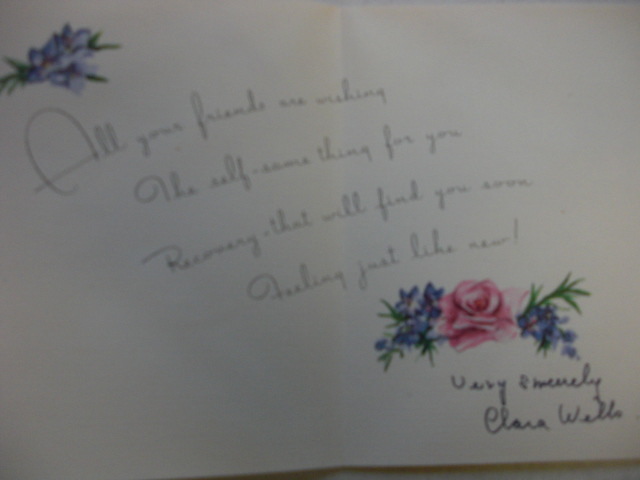 All your friends are wishing
The self-same thing for you
Recovery-that will find you soon
Feeling just like new!
Very sincerely
Clara Wells